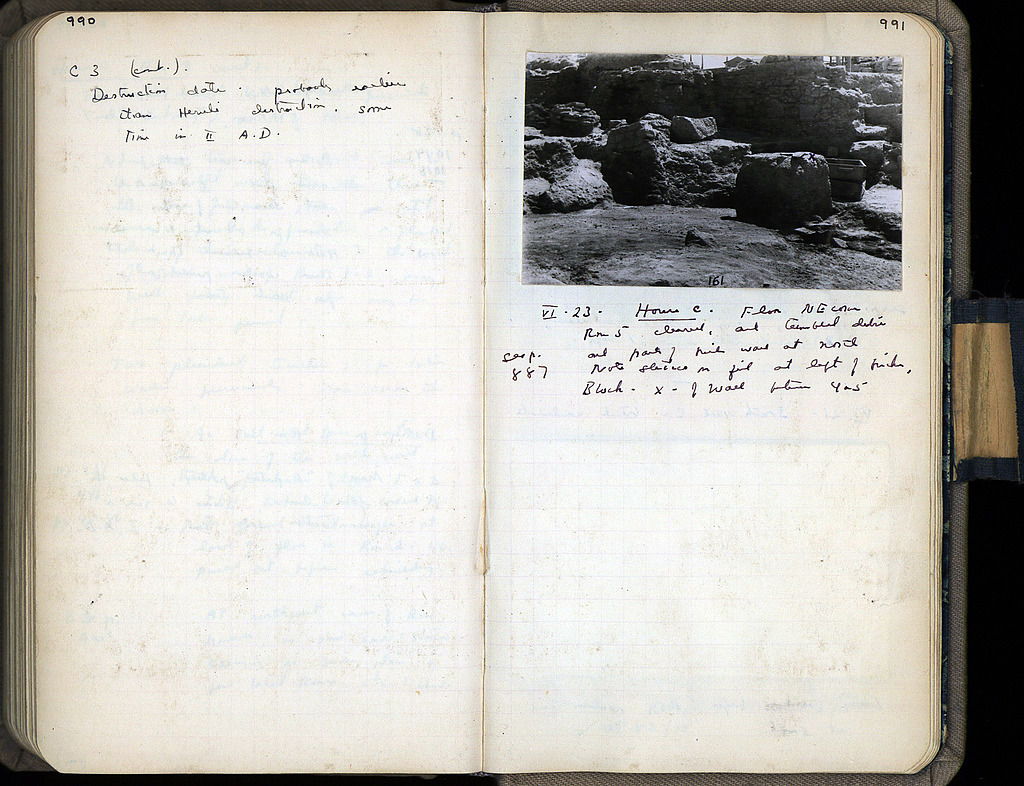 990
C 3 (cont.).
Destruction date. probably earlier
than Heruli destruction. some
time in II A.D.
991
161
VI. 23. House C. Floor NE corner
Rm 5 cleared, and tumbled debris
and part of wall at north
see p. 887
Note in fill at left of
Block. x - of wall between 4 a 5